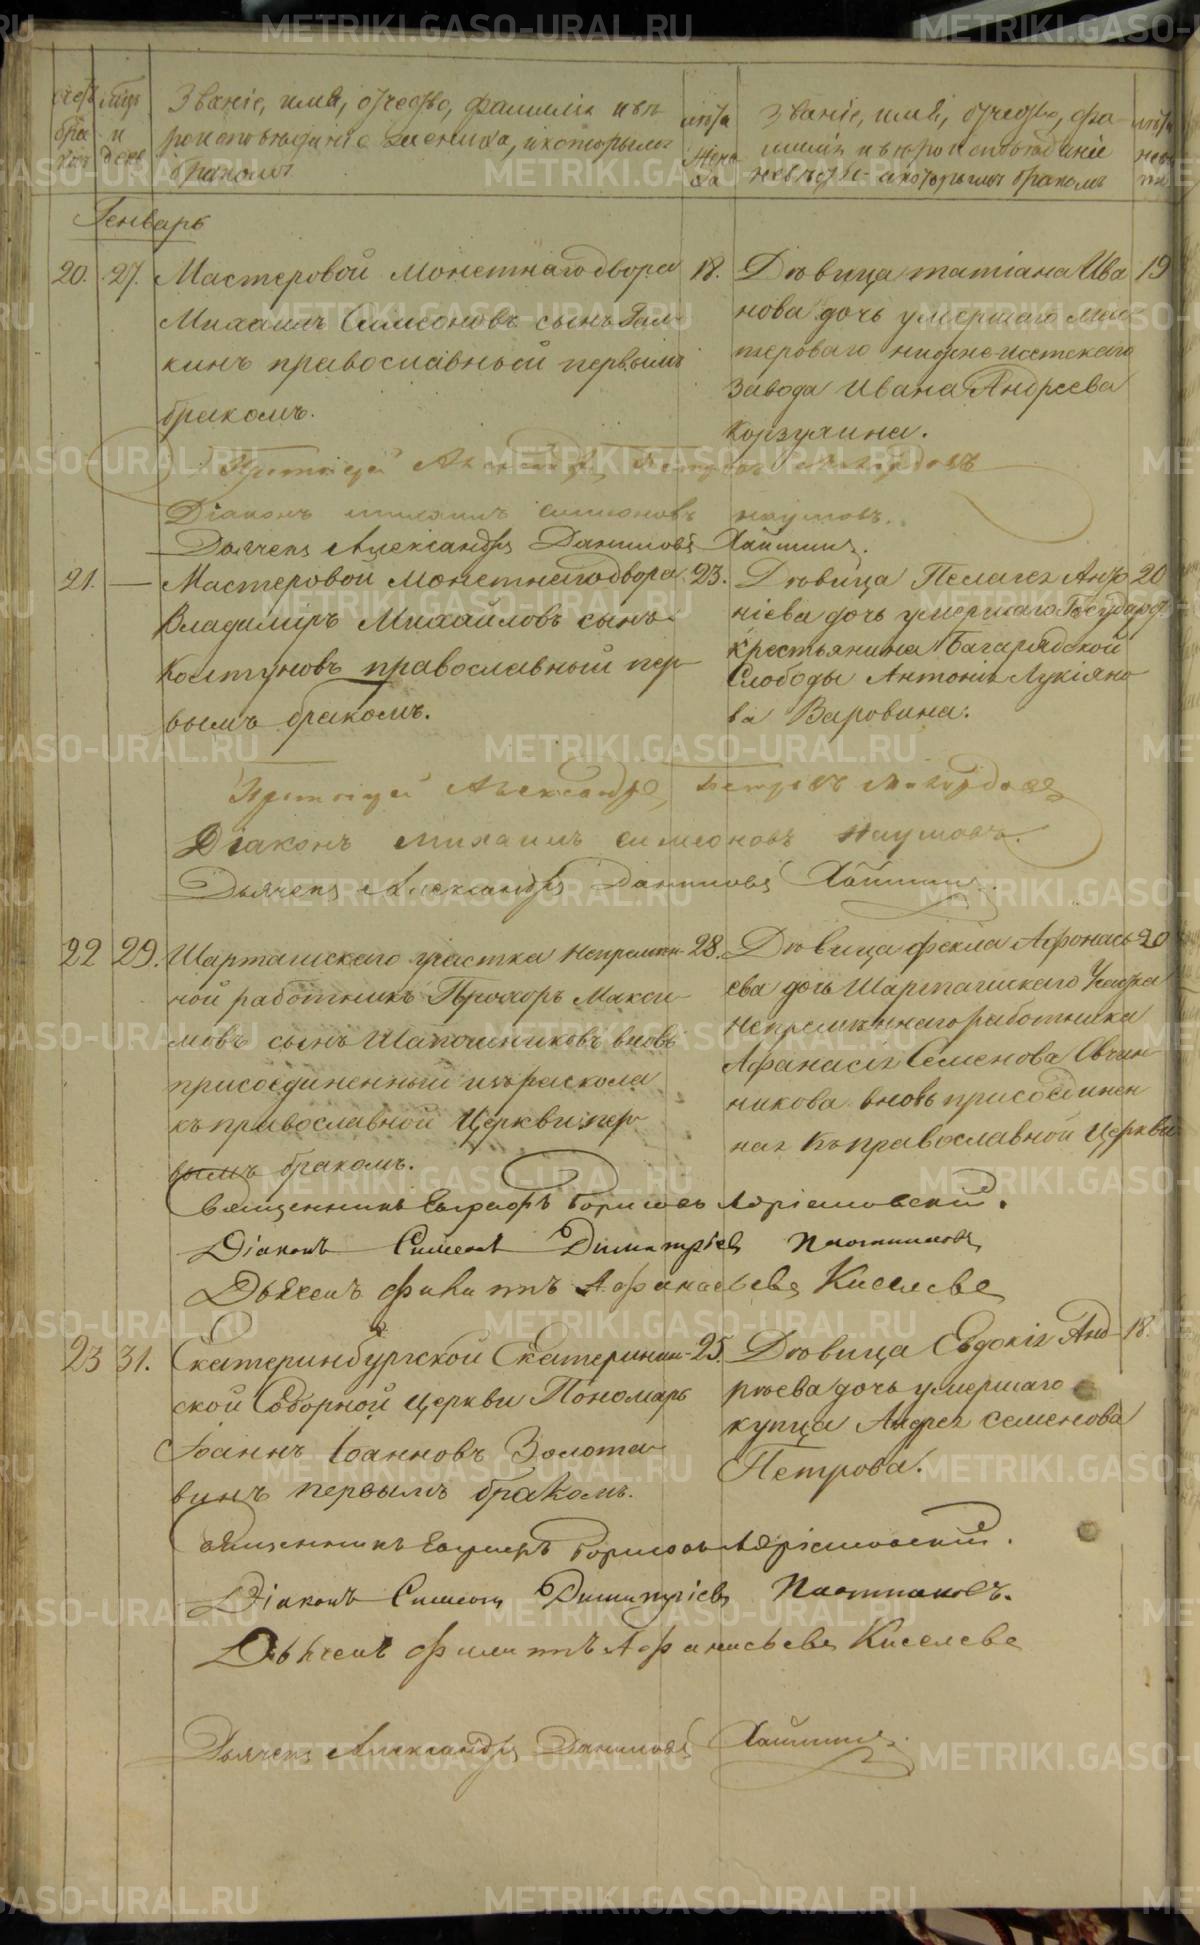 счетъ бра ковъ
мѣсяцъ и день
Званіе, имя, отчество, фамилія и вѣ
роисповѣданіе жениха, и которымъ
бракомъ
лѣта жени ха
Званіе, имя, отчество, фа
милія и вѣроисповѣданіе
невѣсты и которымъ бракомъ
лѣта невѣ сты
Генварь
20. 27. Мастеровой Монетнаго двора 18. Дѣвица татіана Ива 19
Михаилъ Симеоновъ сынъ Гал
кинъ православный первымъ
бракомъ.
нова дочь умершаго мас
тероваго нижне-исетскаго
завода Ивана Андреева
Корзухина.
Протоіерей Александръ Петровъ
Діаконъ михаилъ симеоновъ наумовъ.
Дьячекъ Александръ Даниловъ
21. — Мастеровой Монетнаго двора 23. Дѣвица Пелагея Анто 20
Владимиръ Михайловъ сынъ
Колтуновъ православный пер
вымъ бракомъ.
ніева дочь умершаго Государст
крестьянина Багарядской
Слободы Антонія Лукіяно
ва Варовина.
Протоіерей Александръ Петровъ
Діаконъ михаилъ симеоновъ Наумовъ.
Дьячекъ Александръ Даниловъ
22 29. Шарташскаго участка Непремѣн 28. Дѣвица фекла Афонась 20
ной работникъ Прохоръ Макси
мовъ сынъ Шапошниковъ вновь
присоединенный изъ раскола
къ православной Церкви пер
вымъ бракомъ.
ева дочь Шарташскаго Участка
Непремѣннаго работника
Афанасія Семенова Овчин
никова вновь присоединен
ная къ православной Церкви
Священникъ Евграфъ Борисовъ
Діаконъ Симеонъ Димитріевъ Плотниковъ
Дьячекъ Филиппъ Афанасьевъ Киселевъ
23 31. Екатеринбургской Екатеринин 25. Дѣвица Евдокія Анд 18.
ской Соборной Церкви Пономарь
Іоаннъ Іоанновъ Золота
винъ первымъ бракомъ.
рѣева дочь умершаго
купца Андрея семенова
Петрова.
Священникъ Евграфъ Борисовъ
Діаконъ Симеонъ Димитріевъ Плотниковъ.
Дьячекъ Филиппъ Афанасьевъ Киселевъ
Дьячекъ Александръ Даниловъ
METRIKI.GASO-URAL.RU